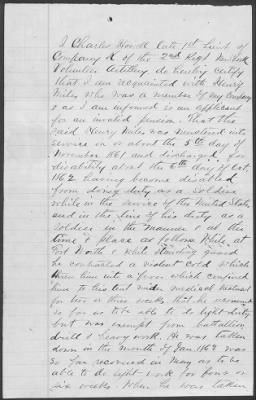 I Charles Howell late 1st Lieut of
Company K of the 2nd Regt New York
Volunteer Artillery do hereby certify
that I am acquainted with Henry
Miles who was a member of my Company
& as I am informed is an applicant
for an invalid pension. That the
said Henry Miles was mustered into
service on or about the 5th day of
November 1861 and discharged for
disability about the 6th day of Oct.
1862 having become disabled
from doing duty as a Soldier
while in the service of the United States
and in the line of his duty as a
Soldier in the manner & at the
time & place as follows While at
Fort Worth & while standing guard
he contracted a violent cold which
threw him into a fever which confined
him to his tent under medical treatment
for two or three weeks that he recovered
so far as to be able to do light duty
but was exempt from battalion
drill & heavy work. He was taken
down in the month of Jan. 1862 was
so far recovered in May as to be
able to do light work for four or
six weeks. When he was taken